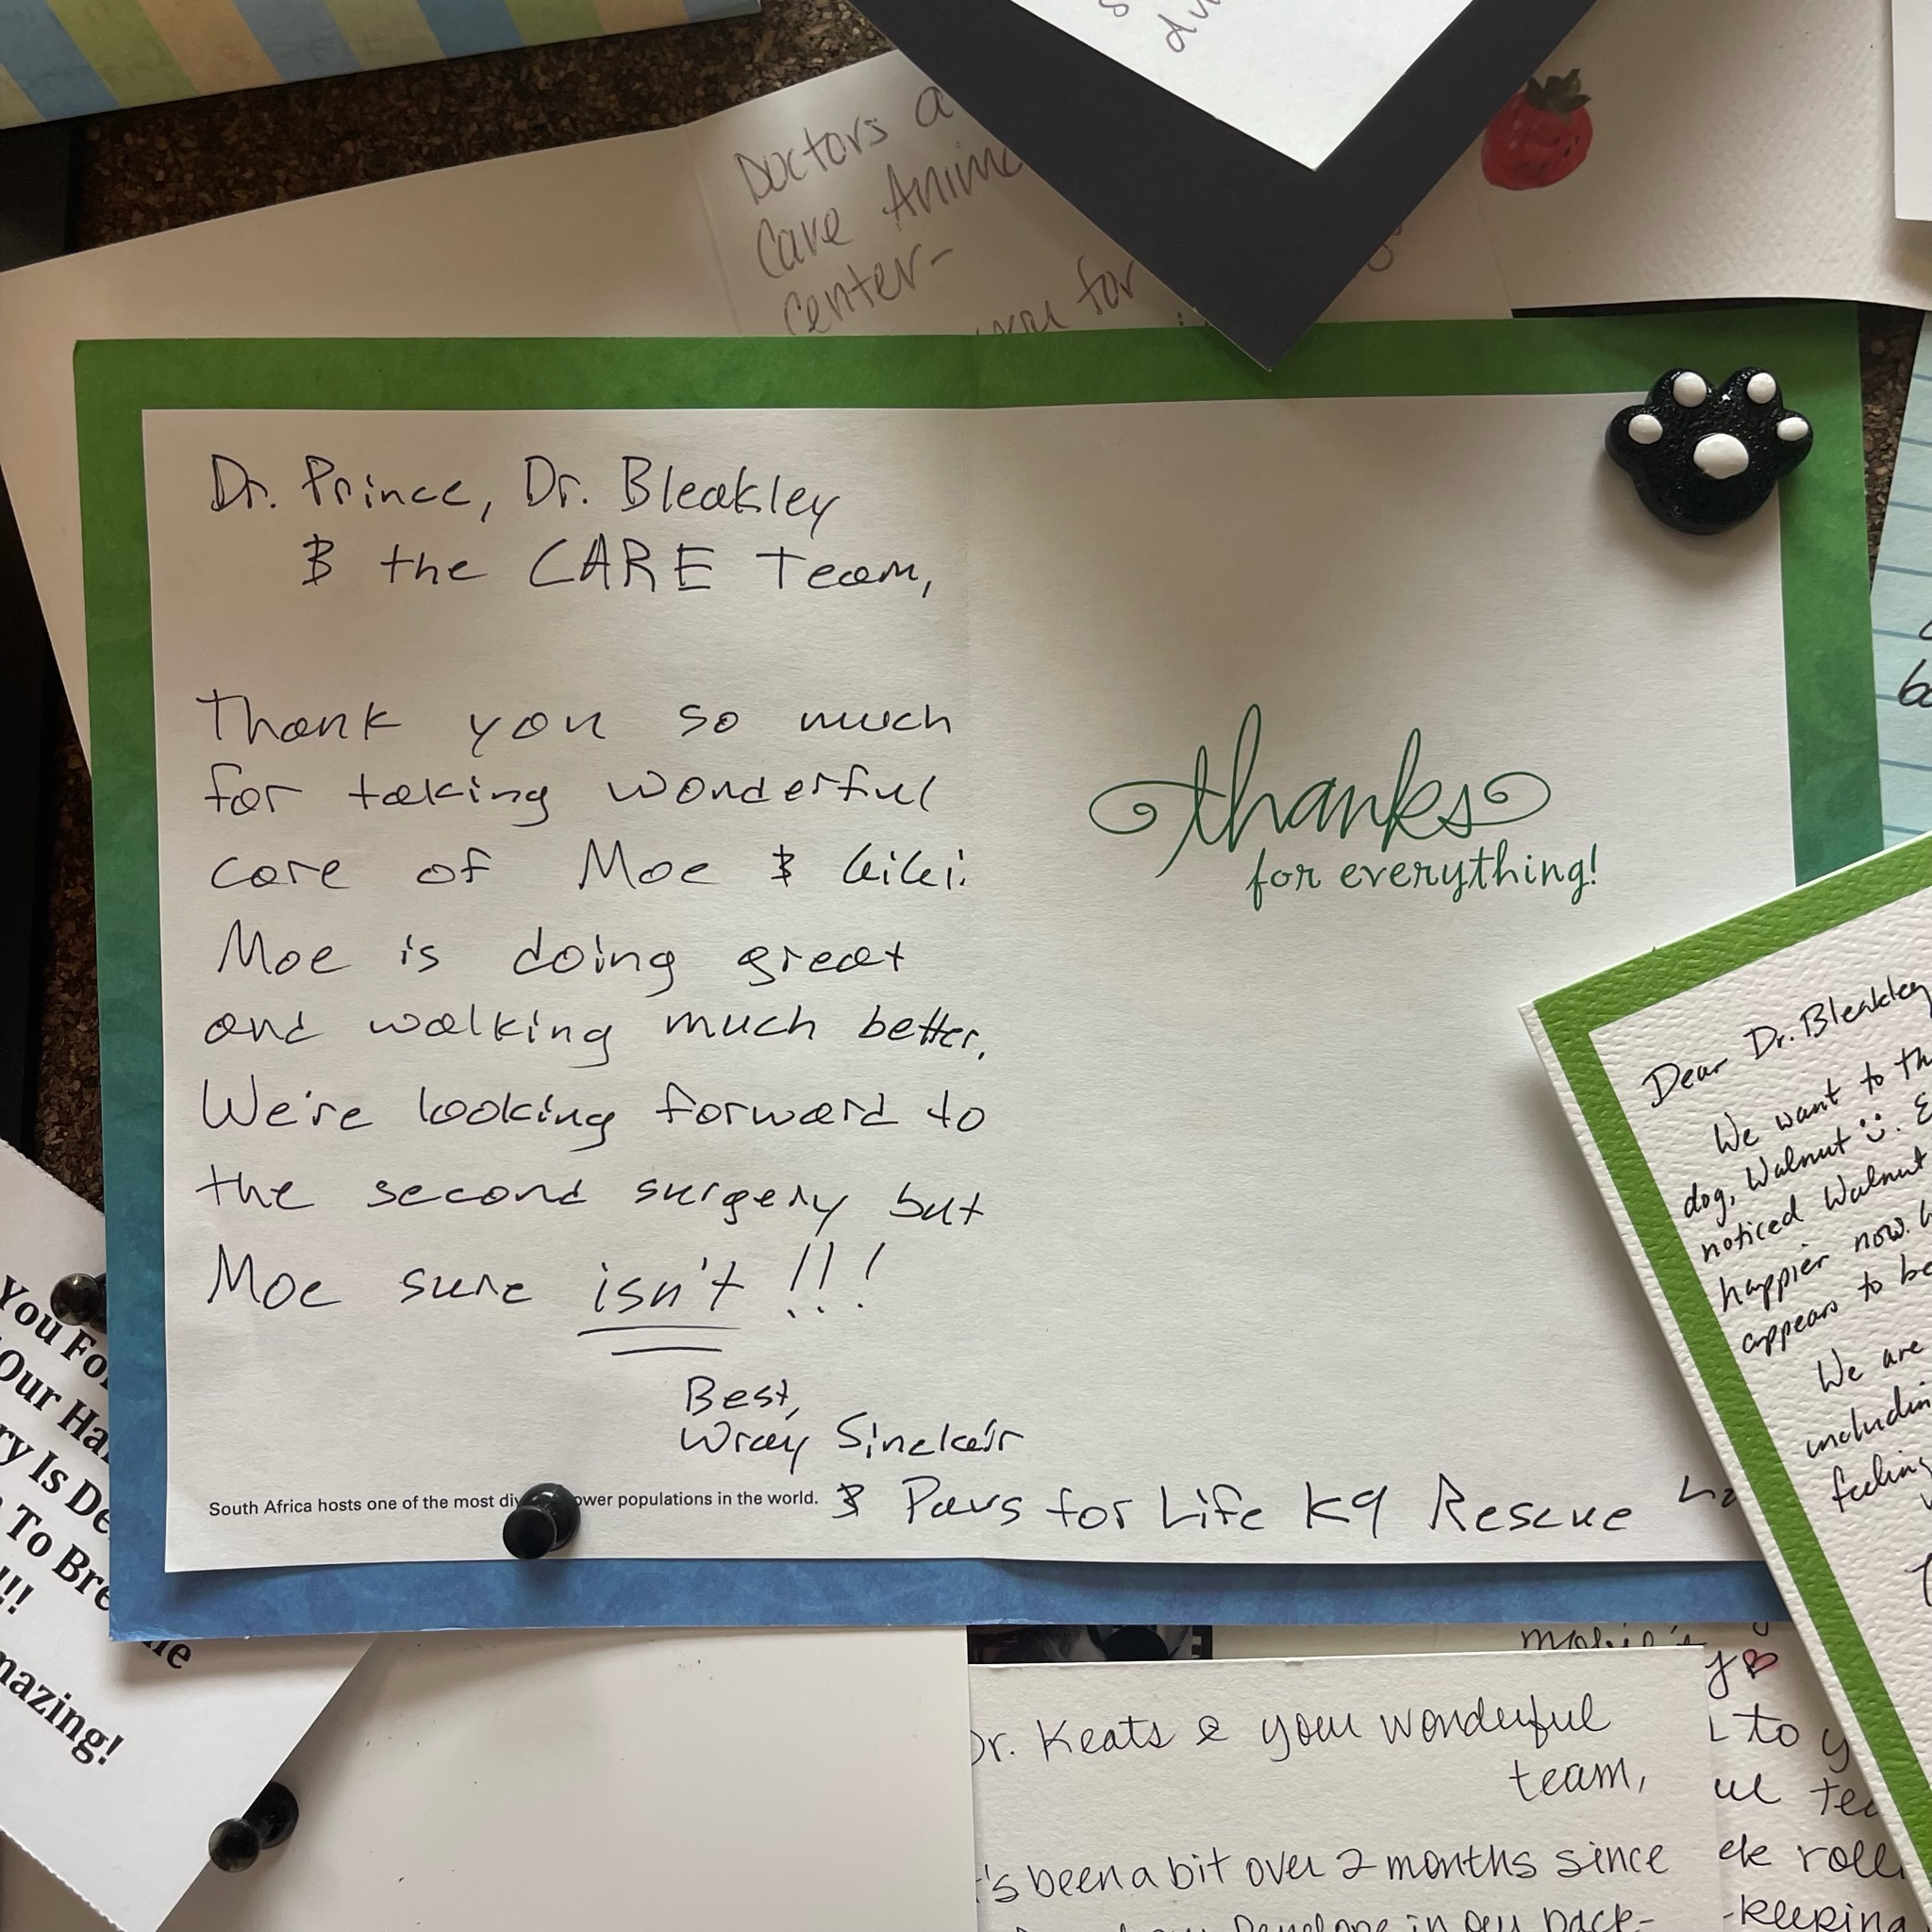 Doctors a
Care Anim
Center-
you for
Dr. Prince, Dr. Bleakley
& the CARE Team,
Thank you so much
for taking wonderful
care of Moe & Kiki.
Moe is doing great
and walking much better.
We're looking forward to
the second surgery but
Moe sure isn't!!!
Best,
Wray Sinclair
& Paws for Life K9 Rescue
South Africa hosts one of the most div ower populations in the world.
thanks
for everything!
Dear Dr. Bleakley
We want to th
dog, Walnut :). E
noticed Walnut
happier now. W
appears to be
We are
includin
feeling
You Fo
Our Ha
ry Is De
To Bre
!!!
mazing!
Dr. Keats & your wonderful
team,
t's been a bit over 2 months since
Penelope in our back-
L to y
ul tea
ek roll
-keeping